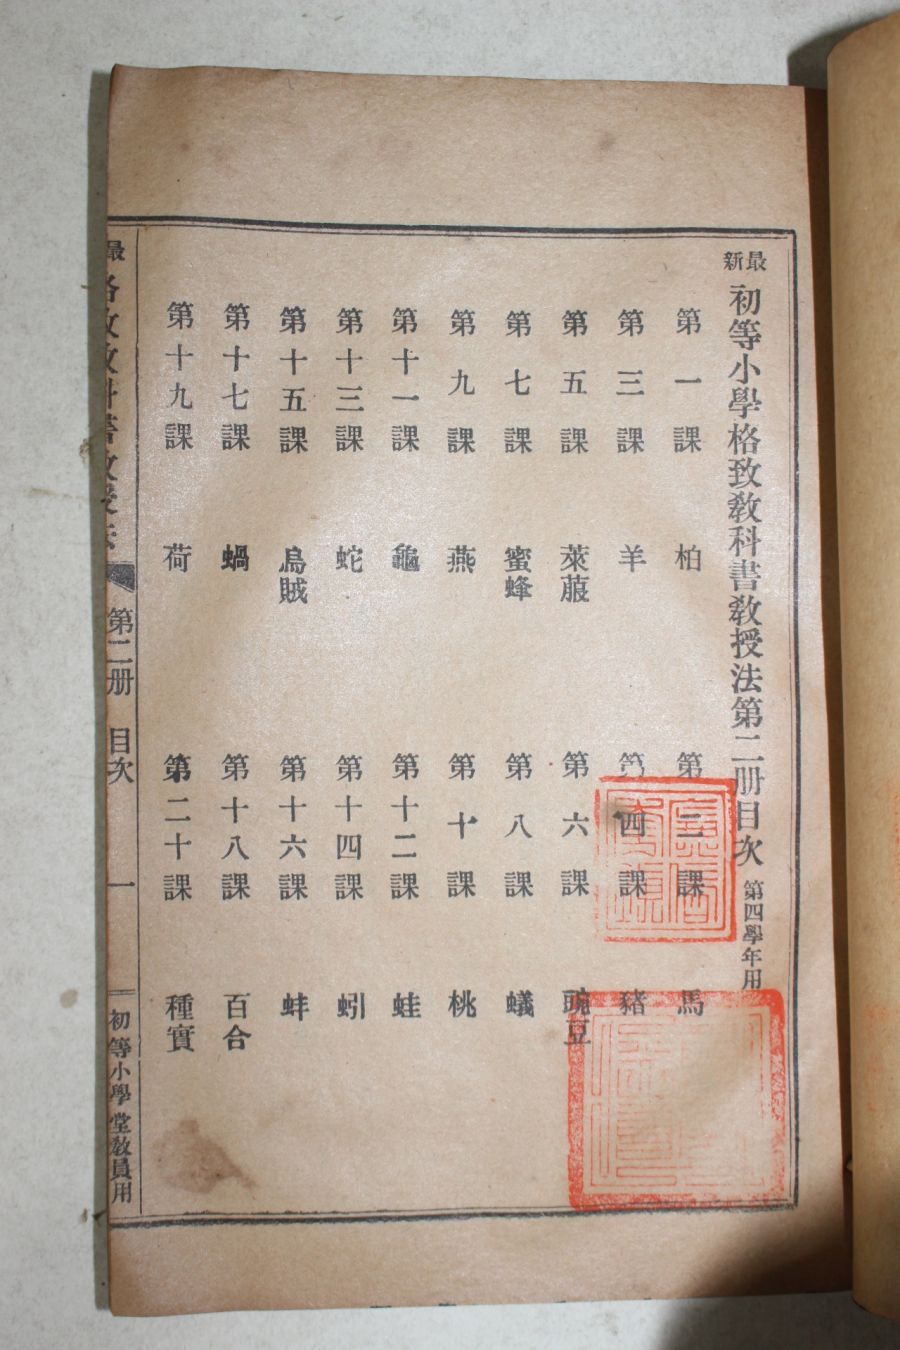 最新初等小學格致敎科書敎授法第二册目次 第四學年用
第一課 柏 第二課 馬
第三課 羊 第四課 豬
第五課 萊菔 第六課 豌豆
第七課 蜜蜂 第八課 蟻
第九課 燕 第十課 桃
第十一課 龜 第十二課 蛙
第十三課 蛇 第十四課 蚓
第十五課 烏賊 第十六課 蚌
第十七課 蝸 第十八課 百合
第十九課 荷 第二十課 種實
最 格致敎科書敎授法 第二册 目次 一 初等小學堂敎員用